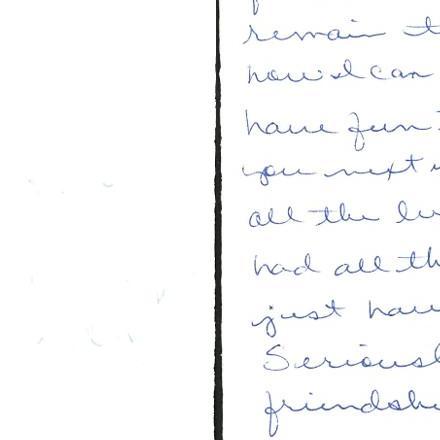 remain t
how I can
have fun
you next
all the lu
had all th
just hav
Seriousl
friendshi